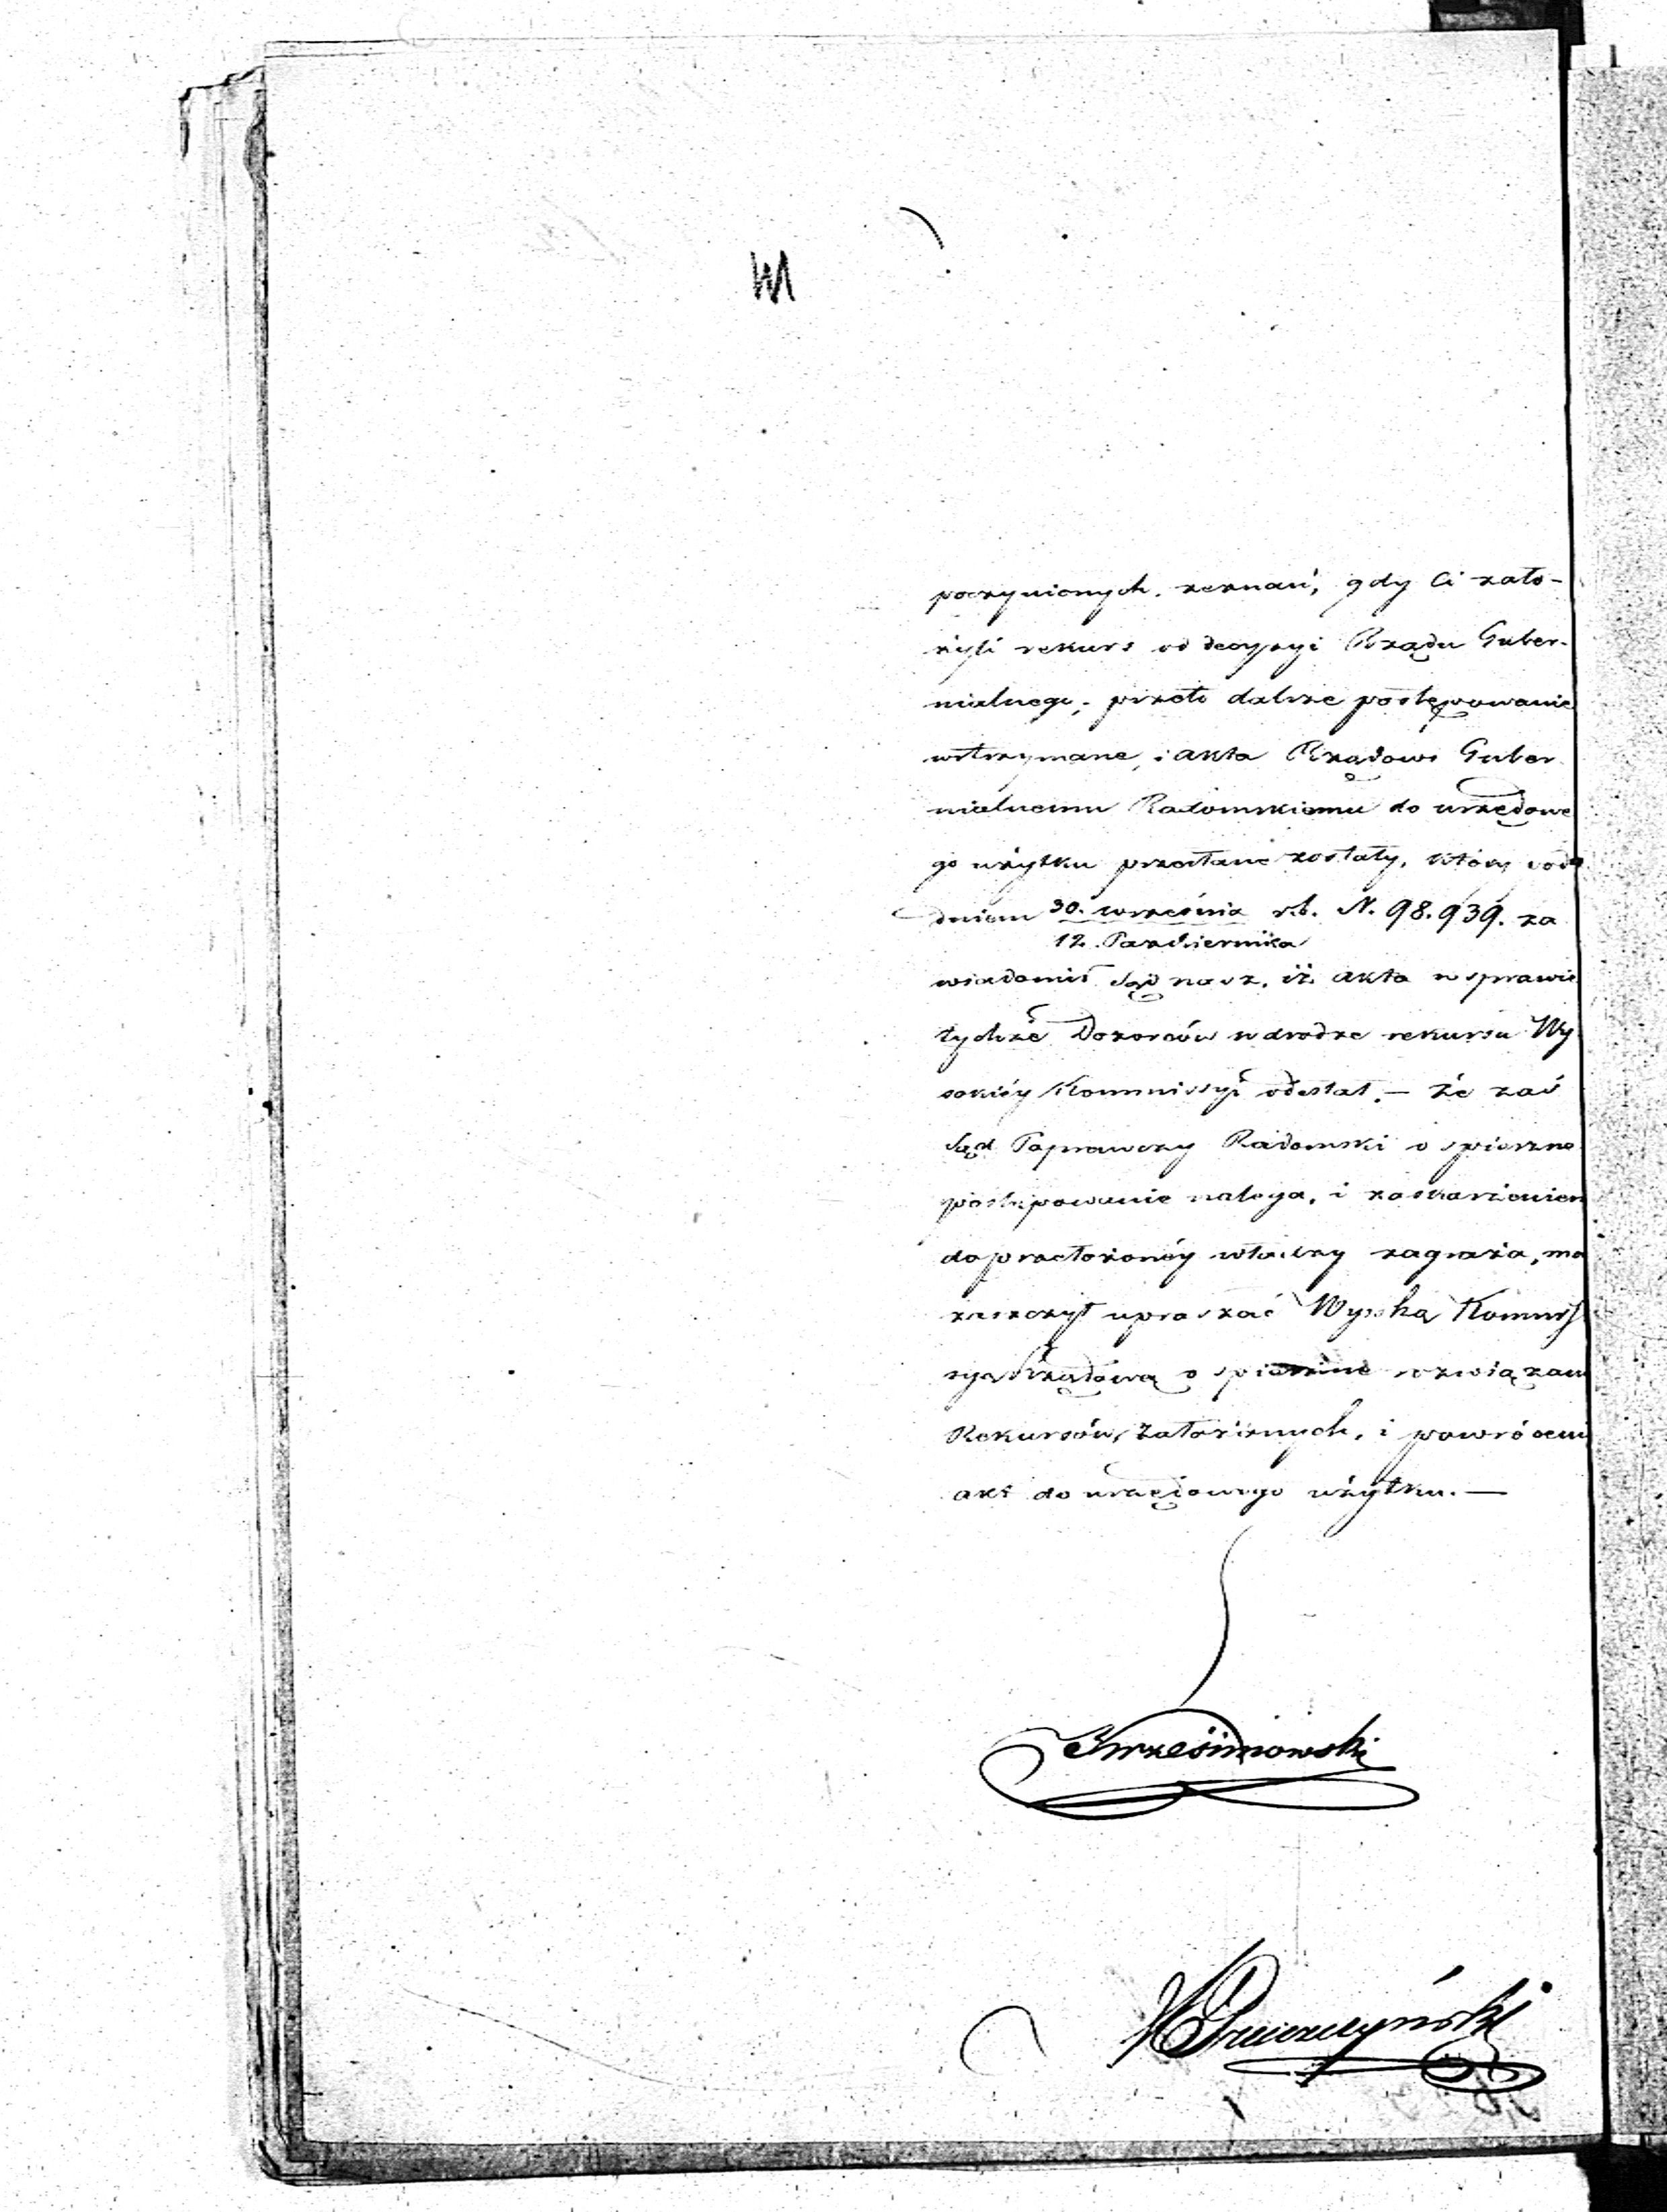 poczynionych zeznań, gdy Ci zało-
żyli rekurs od decyzyi Rządu Guber-
nialnego; przeto dalsze postępowanie
wstrzymane, i akta Rządowi Guber
nialnemu Radomskiemu do urzędowe
go użytku przesłane zostały, który pod
dniem 30. września r.b. N. 98.939. za
12. Października
wiadomił Sąd nasz, iż akta w sprawie
tychże Dozorców w drodze rekursu Wy
sokiéy Kommissyi odesłał. — że zaś
Sąd Poprawczy Radomski o spieszne
postępowanie nalega, i zaskarżeniem
do przełożonéy władzy zagraża, ma
zaszczyt upraszać Wysoką Kommis
syą Rządową o spieszne rozwiązani
Rekursów założonych, i powróceni
akt do urzędowego użytku. —